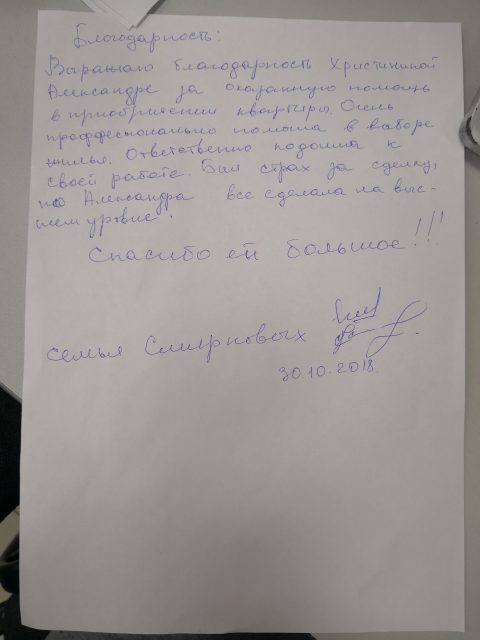 Благодарность:
Выражаю благодарность Христининой
Александре за оказанную помощь
в приобритении квартиры. Очень
проффесионально помогла в выборе
жилья. Ответственно подошла к
своей работе. Был страх за сделку,
но Александра все сделала на выс-
шем уровне.
Спасибо ей большое!!!
семья Смирновых
30.10.2018.